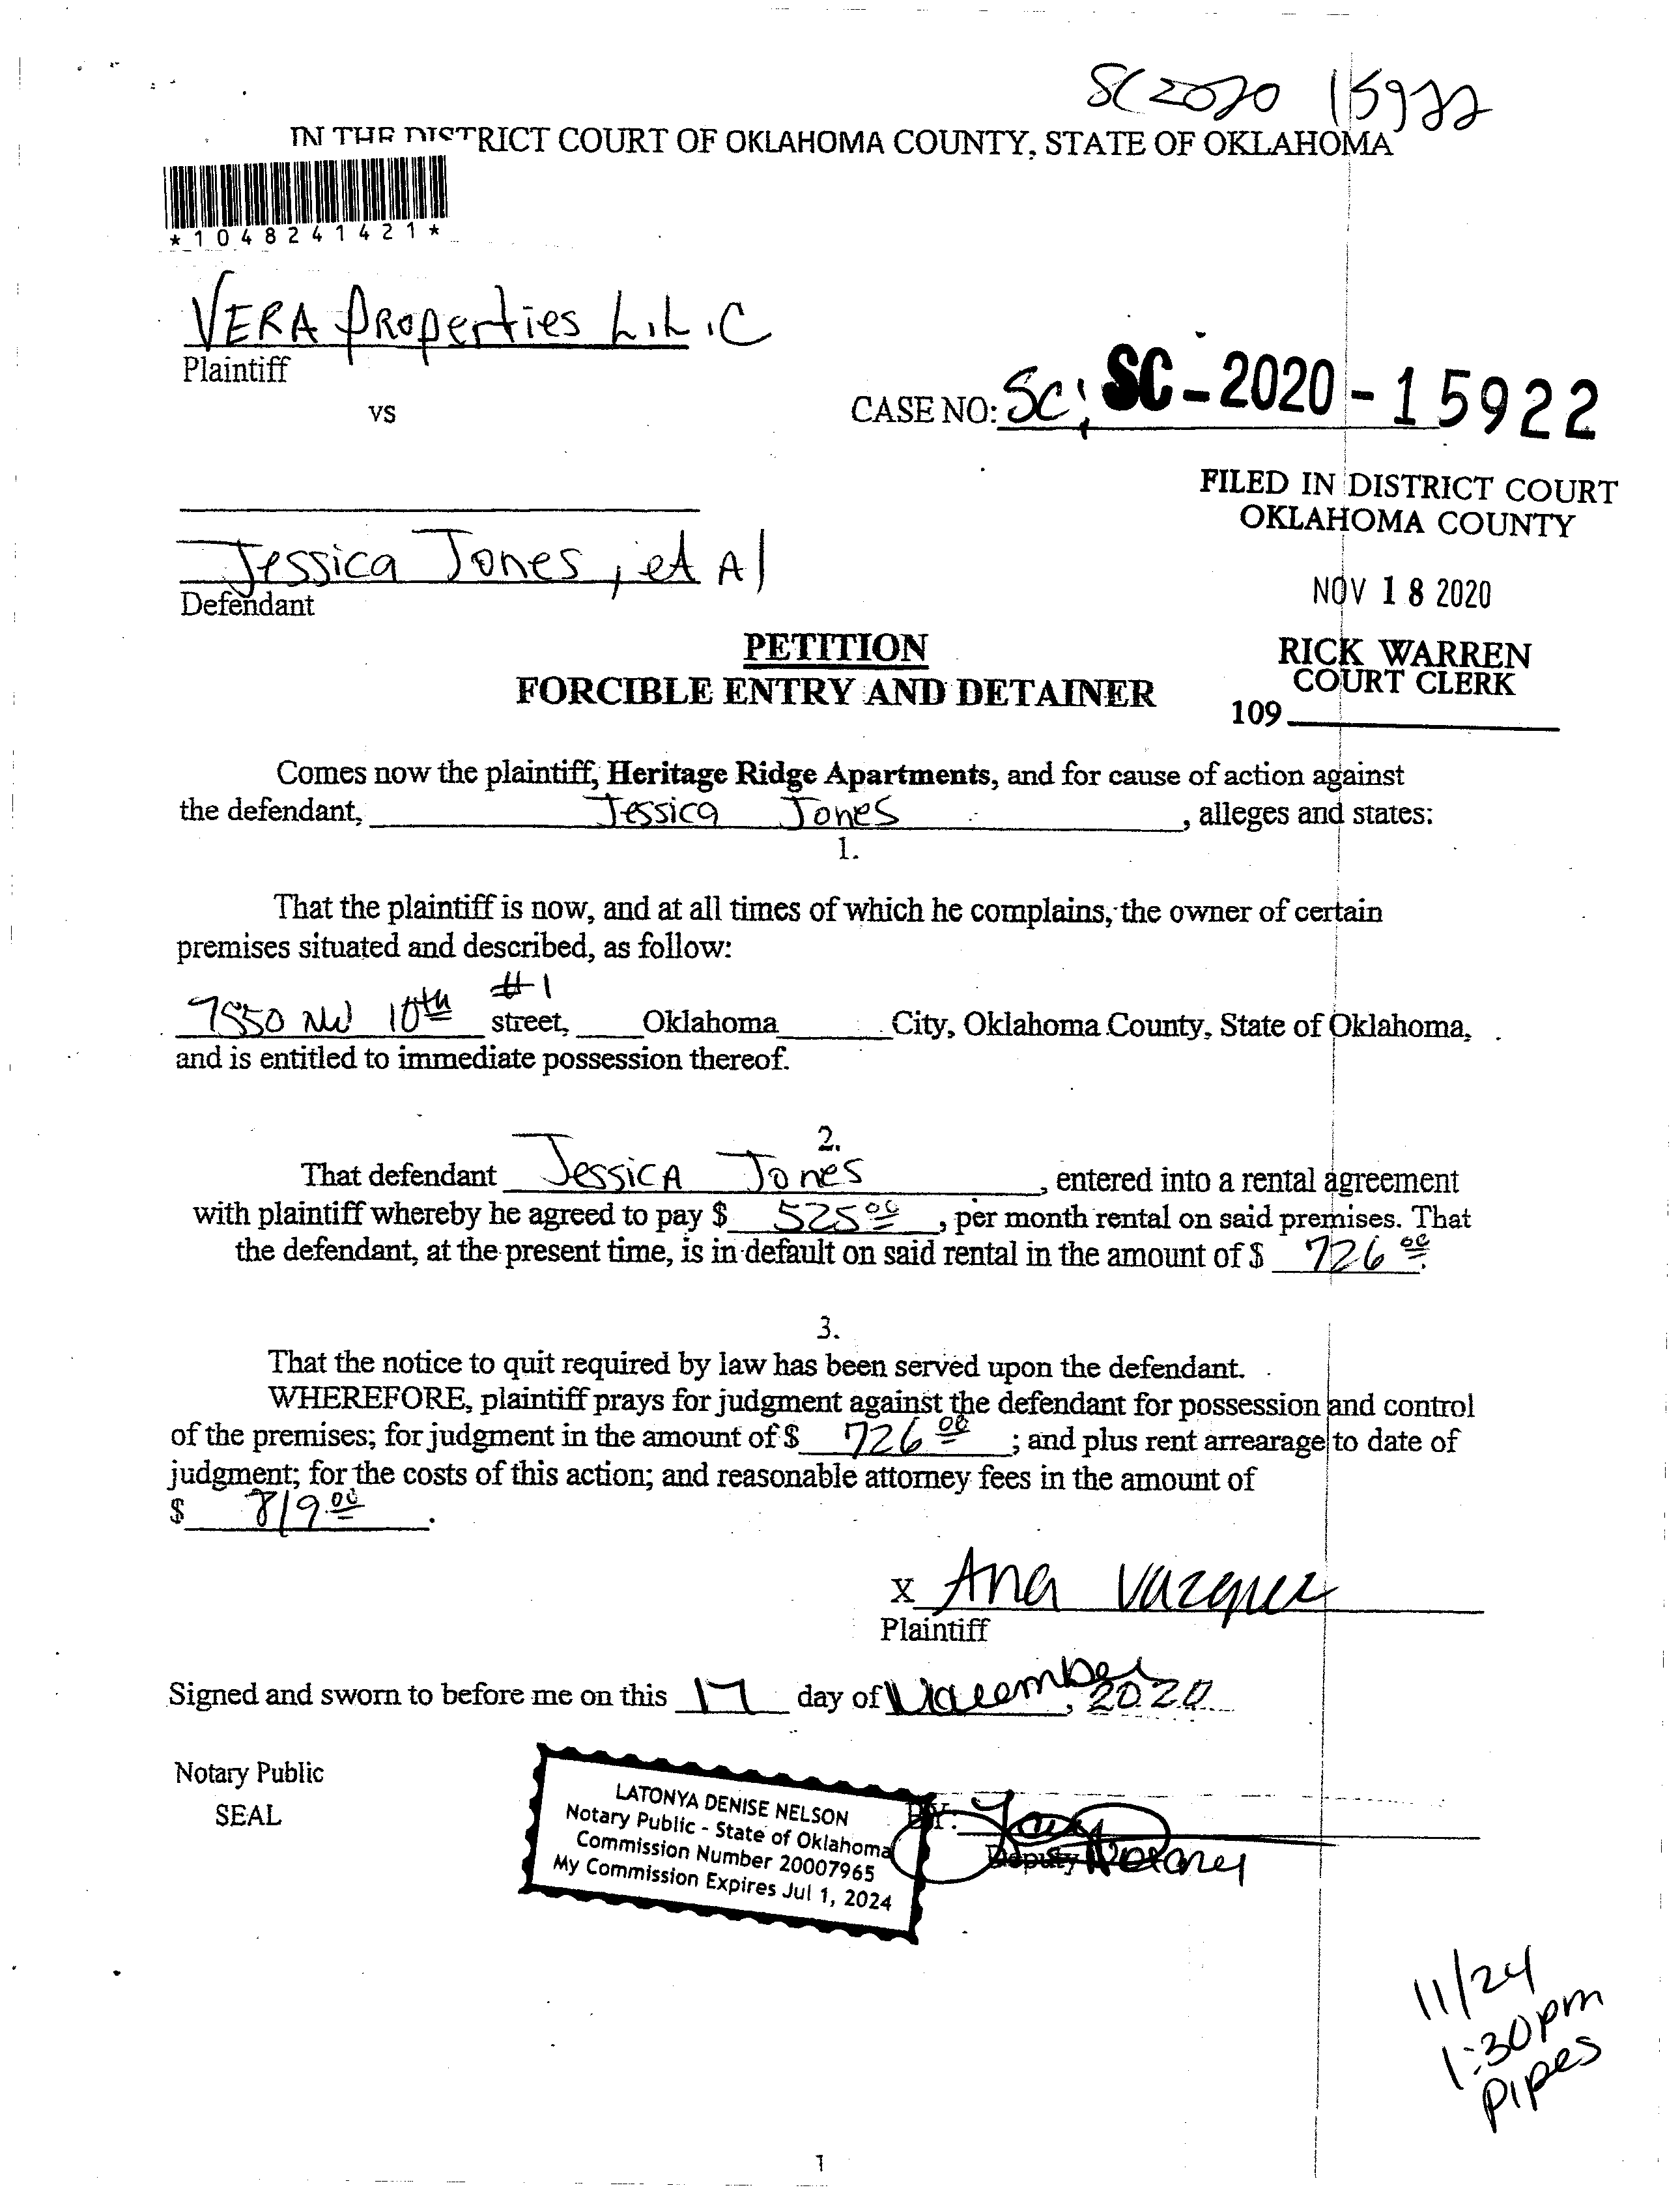 SC2020 15922
IN THE DISTRICT COURT OF OKLAHOMA COUNTY, STATE OF OKLAHOMA
*1048241421*
VERA Properties L.L.C
Plaintiff
vs
CASE NO: SC; SC-2020-15922
FILED IN DISTRICT COURT
OKLAHOMA COUNTY
Jessica Jones, et Al
Defendant
NOV 18 2020
PETITION
FORCIBLE ENTRY AND DETAINER
RICK WARREN
COURT CLERK
109
Comes now the plaintiff, Heritage Ridge Apartments, and for cause of action against
the defendant, Jessica Jones, alleges and states:
1.
That the plaintiff is now, and at all times of which he complains, the owner of certain
premises situated and described, as follow:
#1
7550 NW 10th street, Oklahoma City, Oklahoma County, State of Oklahoma,
and is entitled to immediate possession thereof.
2.
That defendant Jessica Jones, entered into a rental agreement
with plaintiff whereby he agreed to pay $ 525 00, per month rental on said premises. That
the defendant, at the present time, is in default on said rental in the amount of $ 726 00.
3.
That the notice to quit required by law has been served upon the defendant.
WHEREFORE, plaintiff prays for judgment against the defendant for possession and control
of the premises; for judgment in the amount of $ 726 00; and plus rent arrearage to date of
judgment; for the costs of this action; and reasonable attorney fees in the amount of
$ 819.00.
x Ana Vazquez
Plaintiff
Signed and sworn to before me on this 17 day of November, 2020
Notary Public
SEAL
LATONYA DENISE NELSON
Notary Public - State of Oklahoma
Commission Number 20007965
My Commission Expires Jul 1, 2024
BY:
Deputy Notary
11/24
1:30pm
Pipes
1